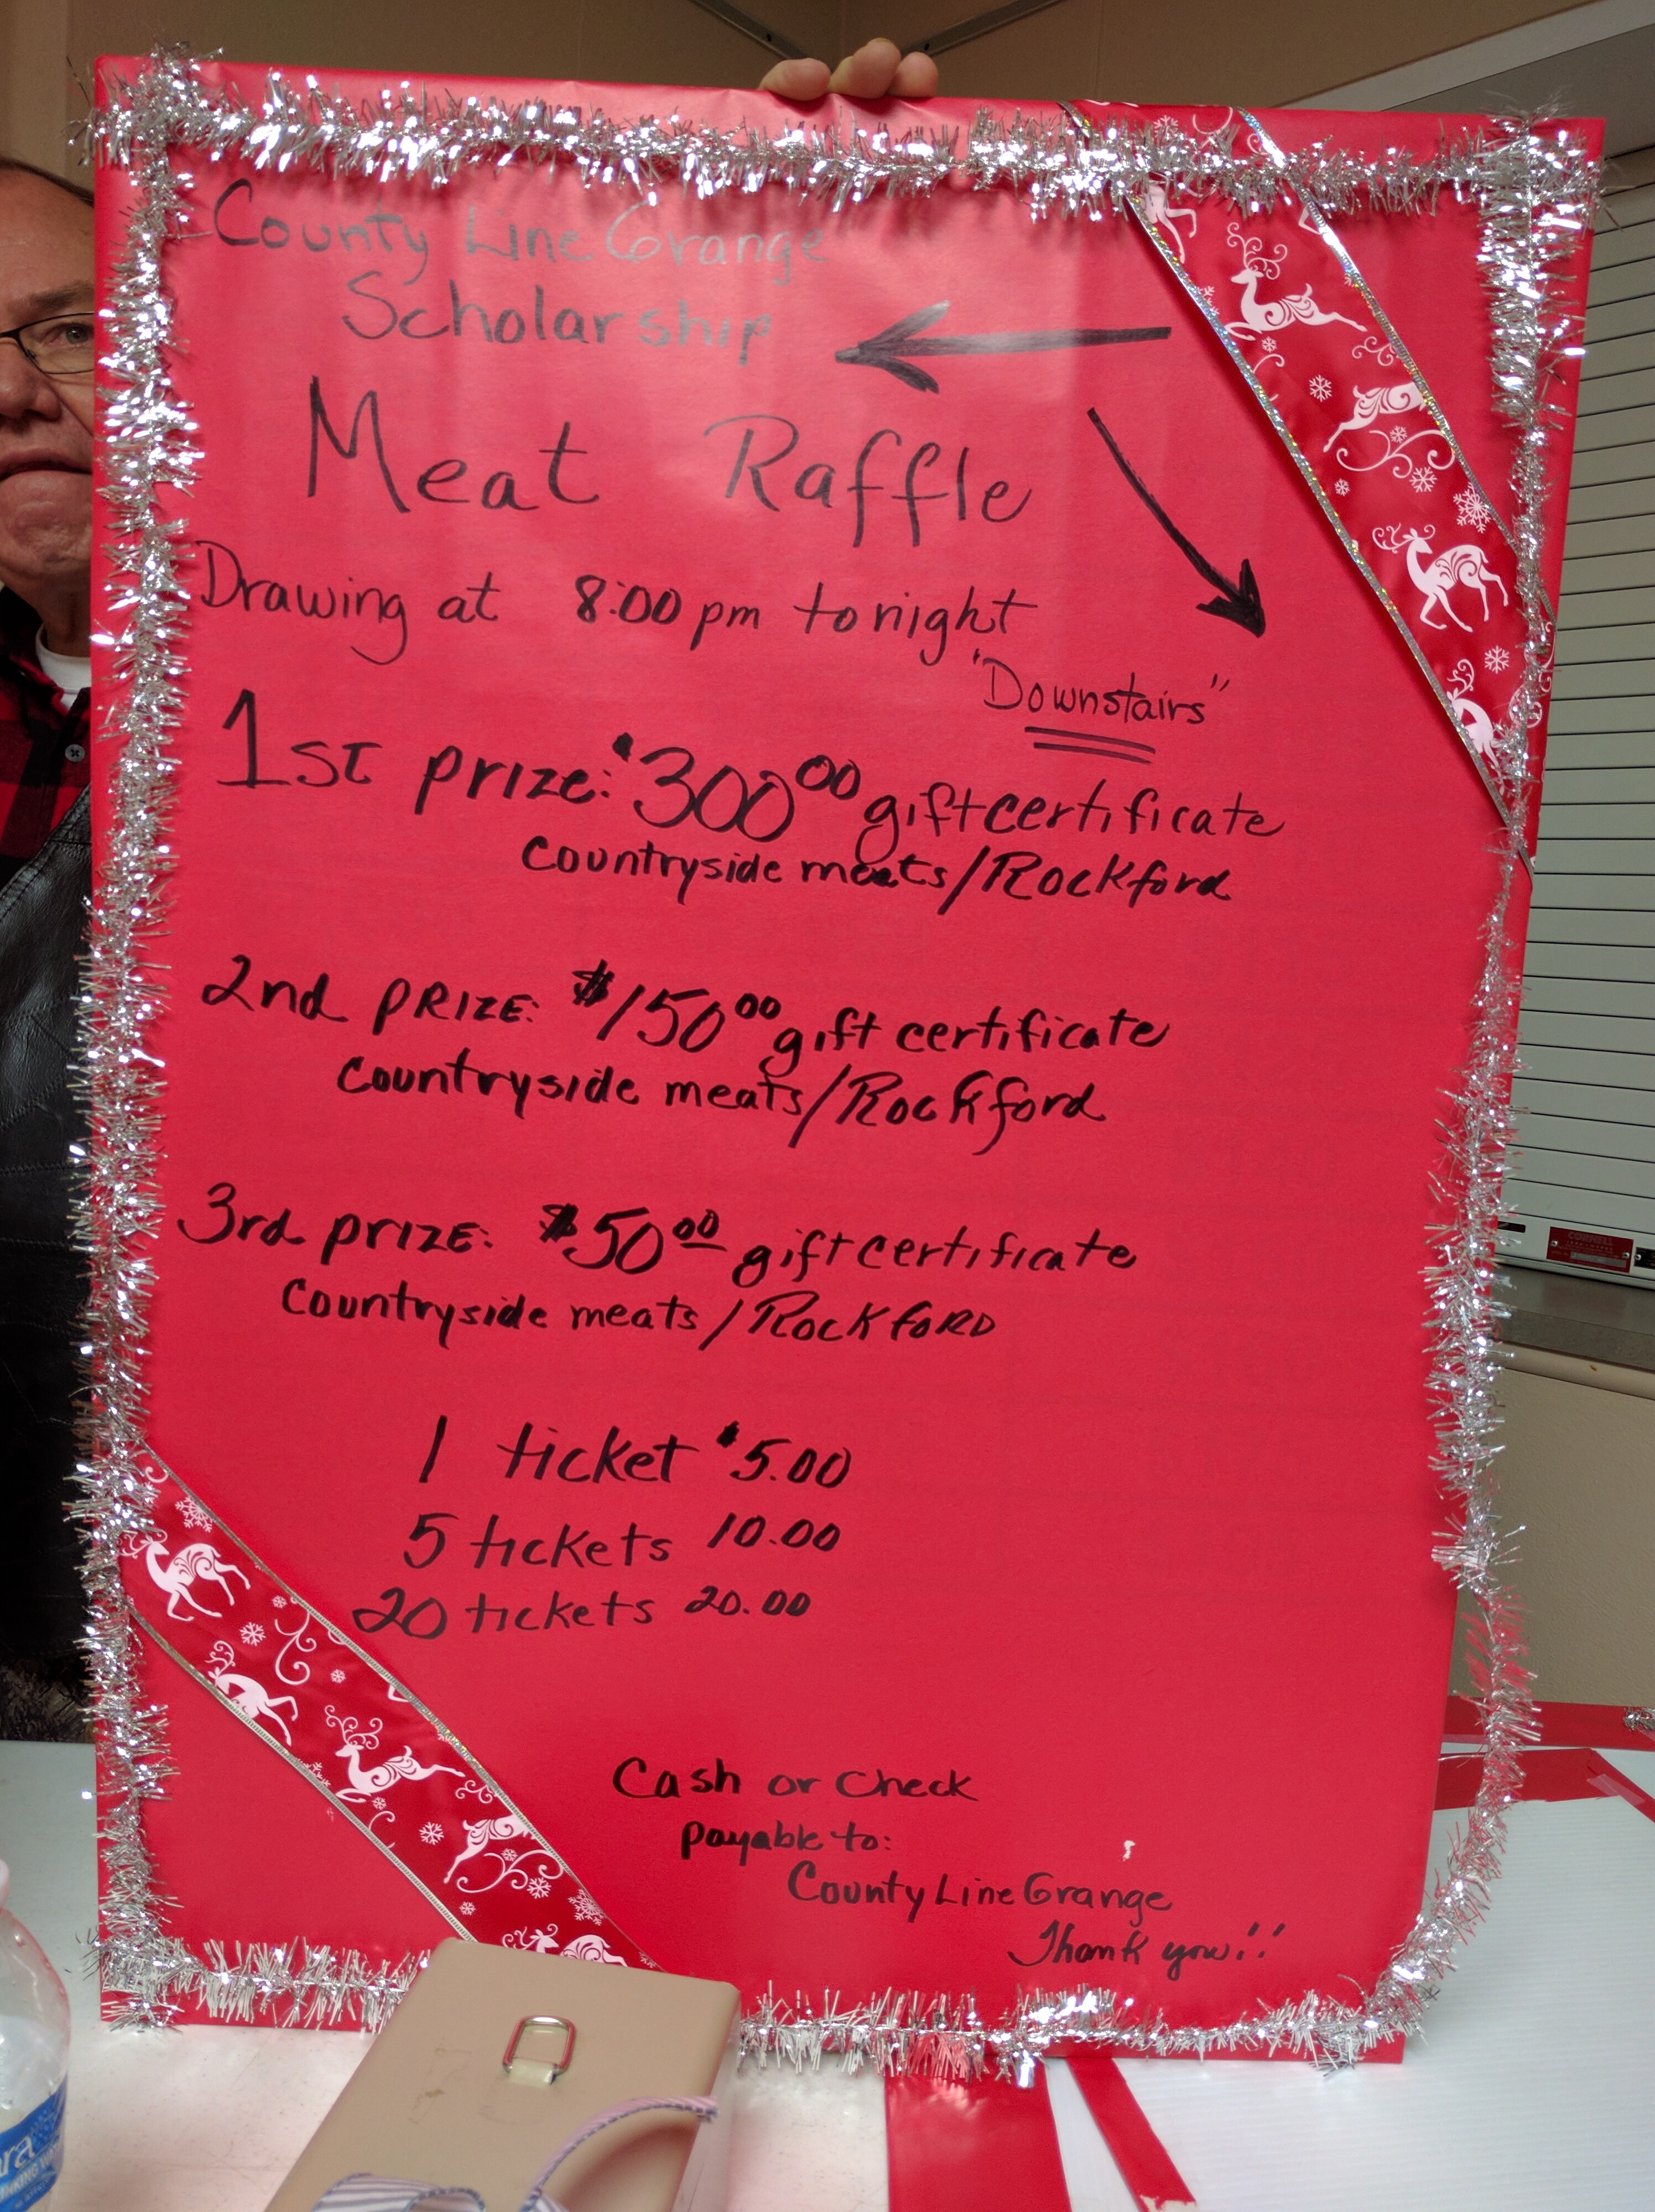 County Line Grange
Scholarship
Meat Raffle
Drawing at 8:00 pm tonight
"Downstairs"
1st prize: $300.00 gift certificate
countryside meats/Rockford
2nd PRIZE: $150.00 gift certificate
countryside meats/Rockford
3rd prize: $50.00 gift certificate
countryside meats/ROCKFORD
1 ticket $5.00
5 tickets 10.00
20 tickets 20.00
Cash or check
payable to:
County Line Grange
Thank you!!